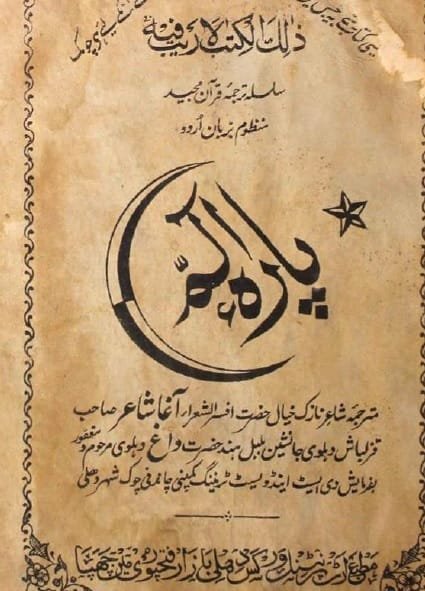 ذٰلِكَ الْكِتٰبُ لَا رَيْبَ فِيْهِ
سلسلہ ترجمۂ قرآن مجید
منظوم بزبان اُردو
پارہ الٓمّ
مترجمۂ شاعر نازک خیال حضرت افسر الشعراء آغا شاعر صاحب
قزلباش دہلوی جانشین بلبل ہند حضرت داغ دہلوی مرحوم و مغفور
بفرمایش دی ایسٹ اینڈ ویسٹ ٹریڈنگ کمپنی چاندنی چوک شہر دہلی
مطبع آرٹ پرنٹنگ ورکس دہلی بازار فتحپوری میں چھپا